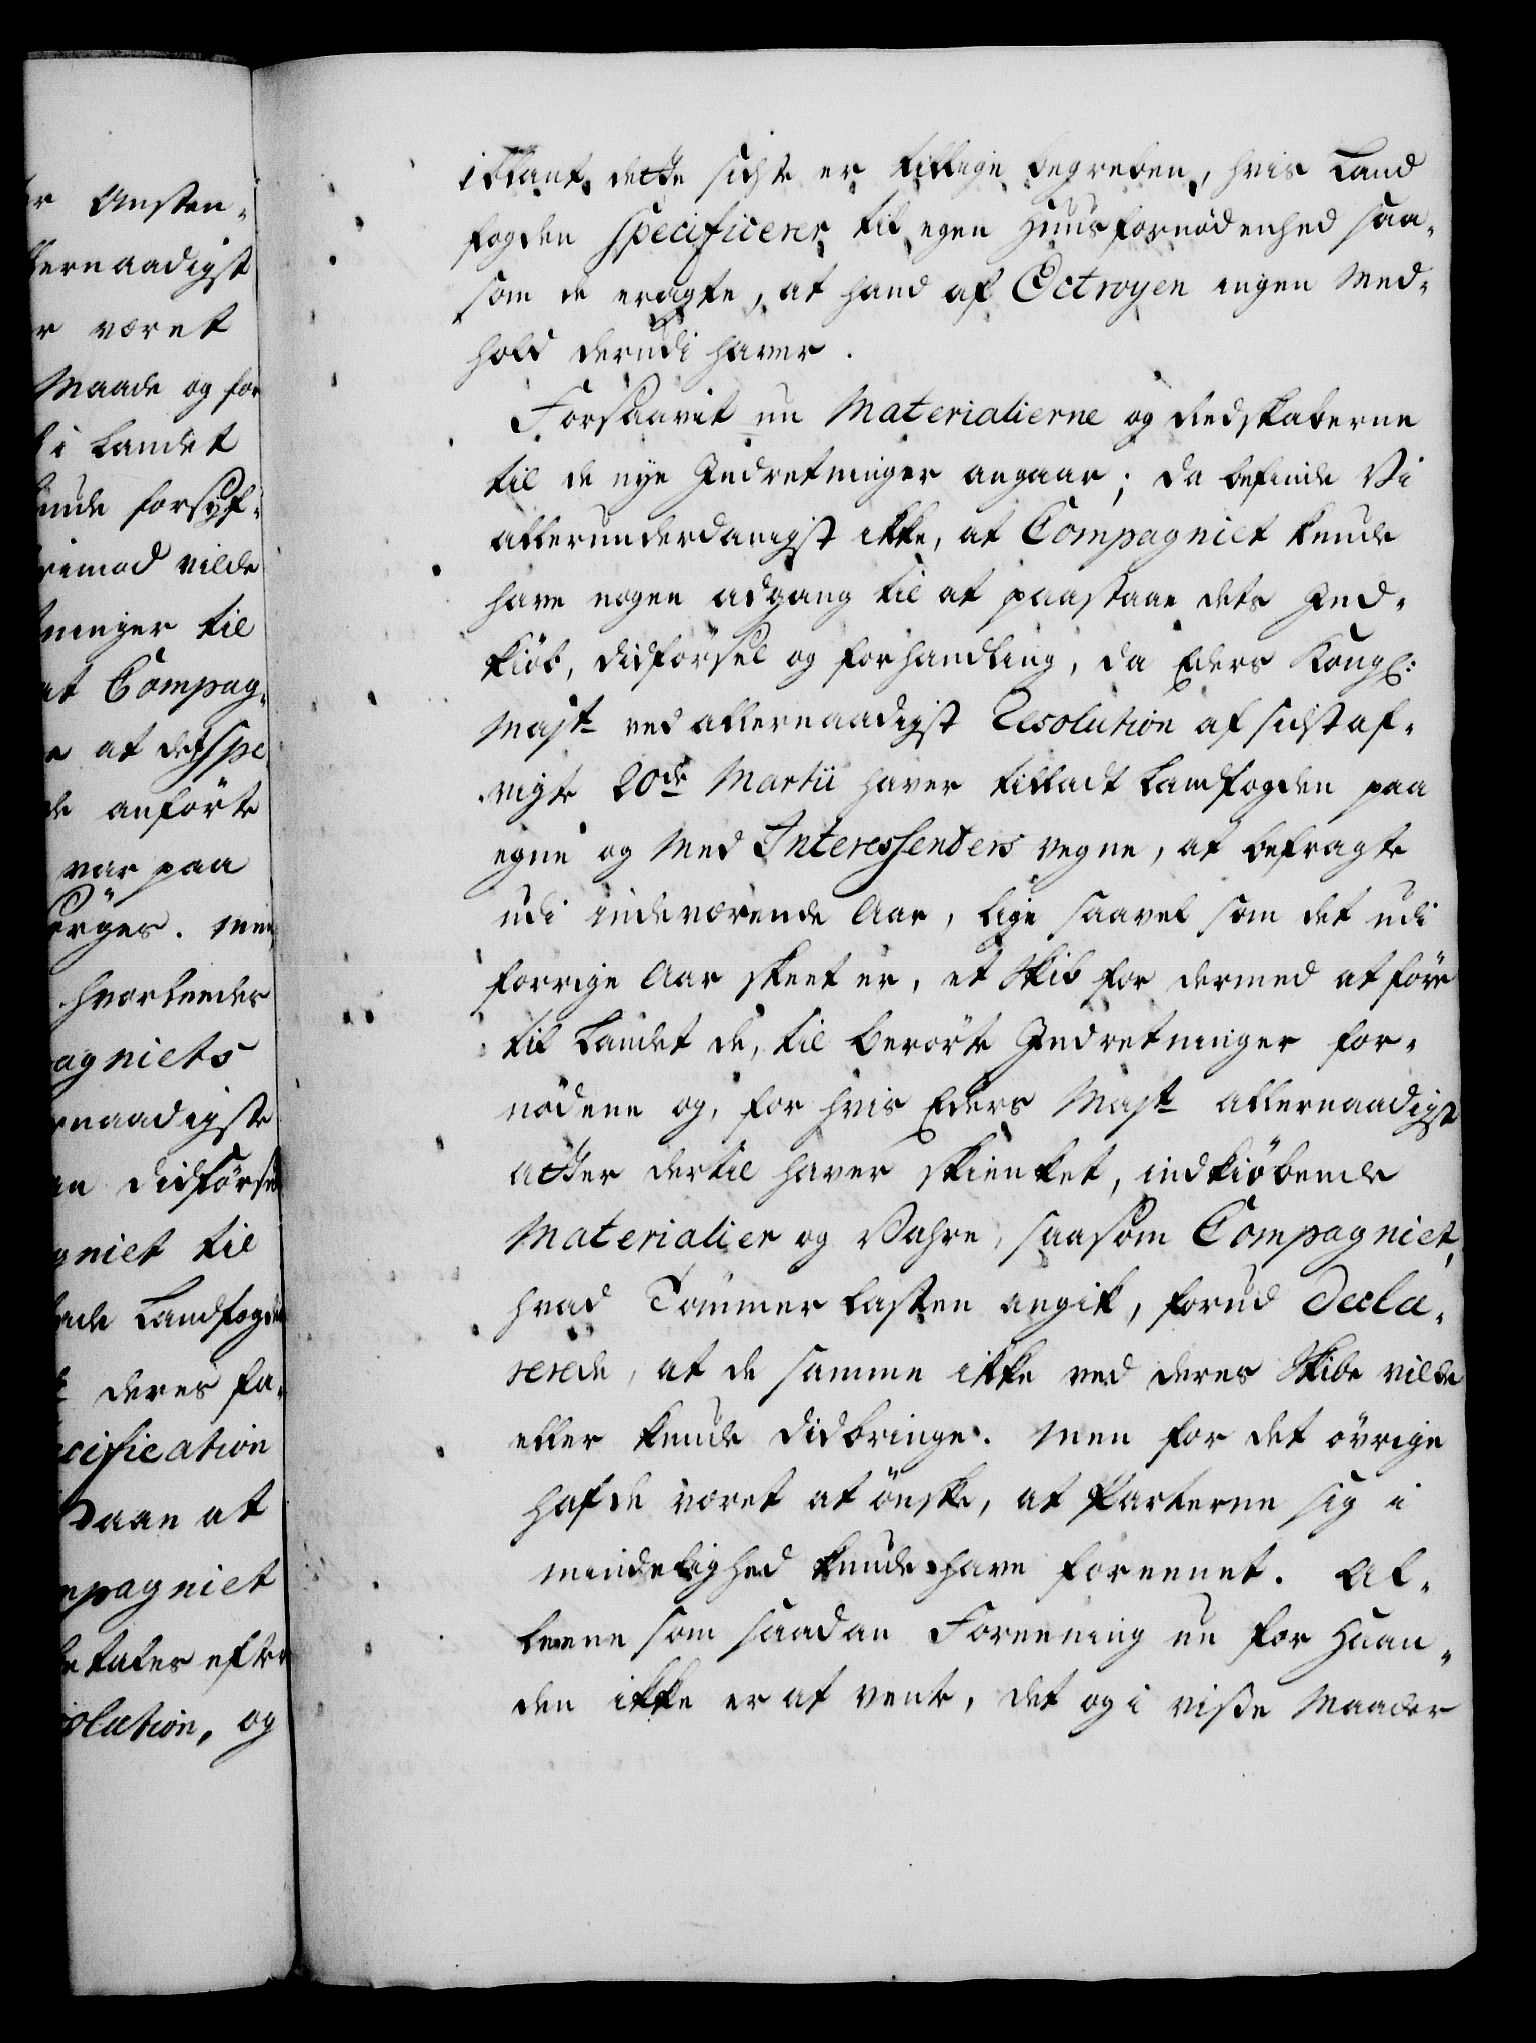 er Ansten-
llernaadigst
er været
Maade og for
i Landet
kunde forsyf-
erimod vilde
tninger til
at Compag-
e at det spe
de anförte
var paa
sörges. men
hvorledes
agniets
ernaadigste
an didförsel
gniet til
ede Landfogden
deres fa-
ecification
Daan at
mpagniet
betales efter
solution, og
iblant dette sidste er tillige begreben, hvis Land
fogden specificerer til egen Huusfornødenhed saa-
som de eragte, at hand af Octroyen ingen Med-
hold derudi haver.
Forsaavit nu Materialierne og Redskaberne
til de nye Indretninger angaar; da befinde Vi
allerunderdanigst ikke, at Compagniet kunde
have nogen adgang til at paastaae dets Ind-
kiöb, didförsel og forhandling, da Eders Kongl:
Majt. ved allernaadigst Resolution af sidst af-
vigte 20de Martii haver tilladt Landfogden paa
egne og Med Interessenters vegne, at befragte
udi indeværende Aar, lige saavel som det udi
forrige Aar skeet er, et Skib for dermed at före
til Landet de, til berörte Indretninger for-
nödene og, for hvis Eders Majt. allernaadigst
atter dertil haver skienket, indkiöbende
Materialier og Vahre, saasom Compagniet,
hvad Tömmer lasten angik, forud decla-
rerede, at de samme ikke ved deres Skibe vilde
eller kunde didbringe. Men for det övrige
hafde været at önske, at Parterne sig i
mindelighed kunde have foreenet. Al-
leene som saadan Foreening nu for Haan-
den ikke er at vente, det og i visse Maader